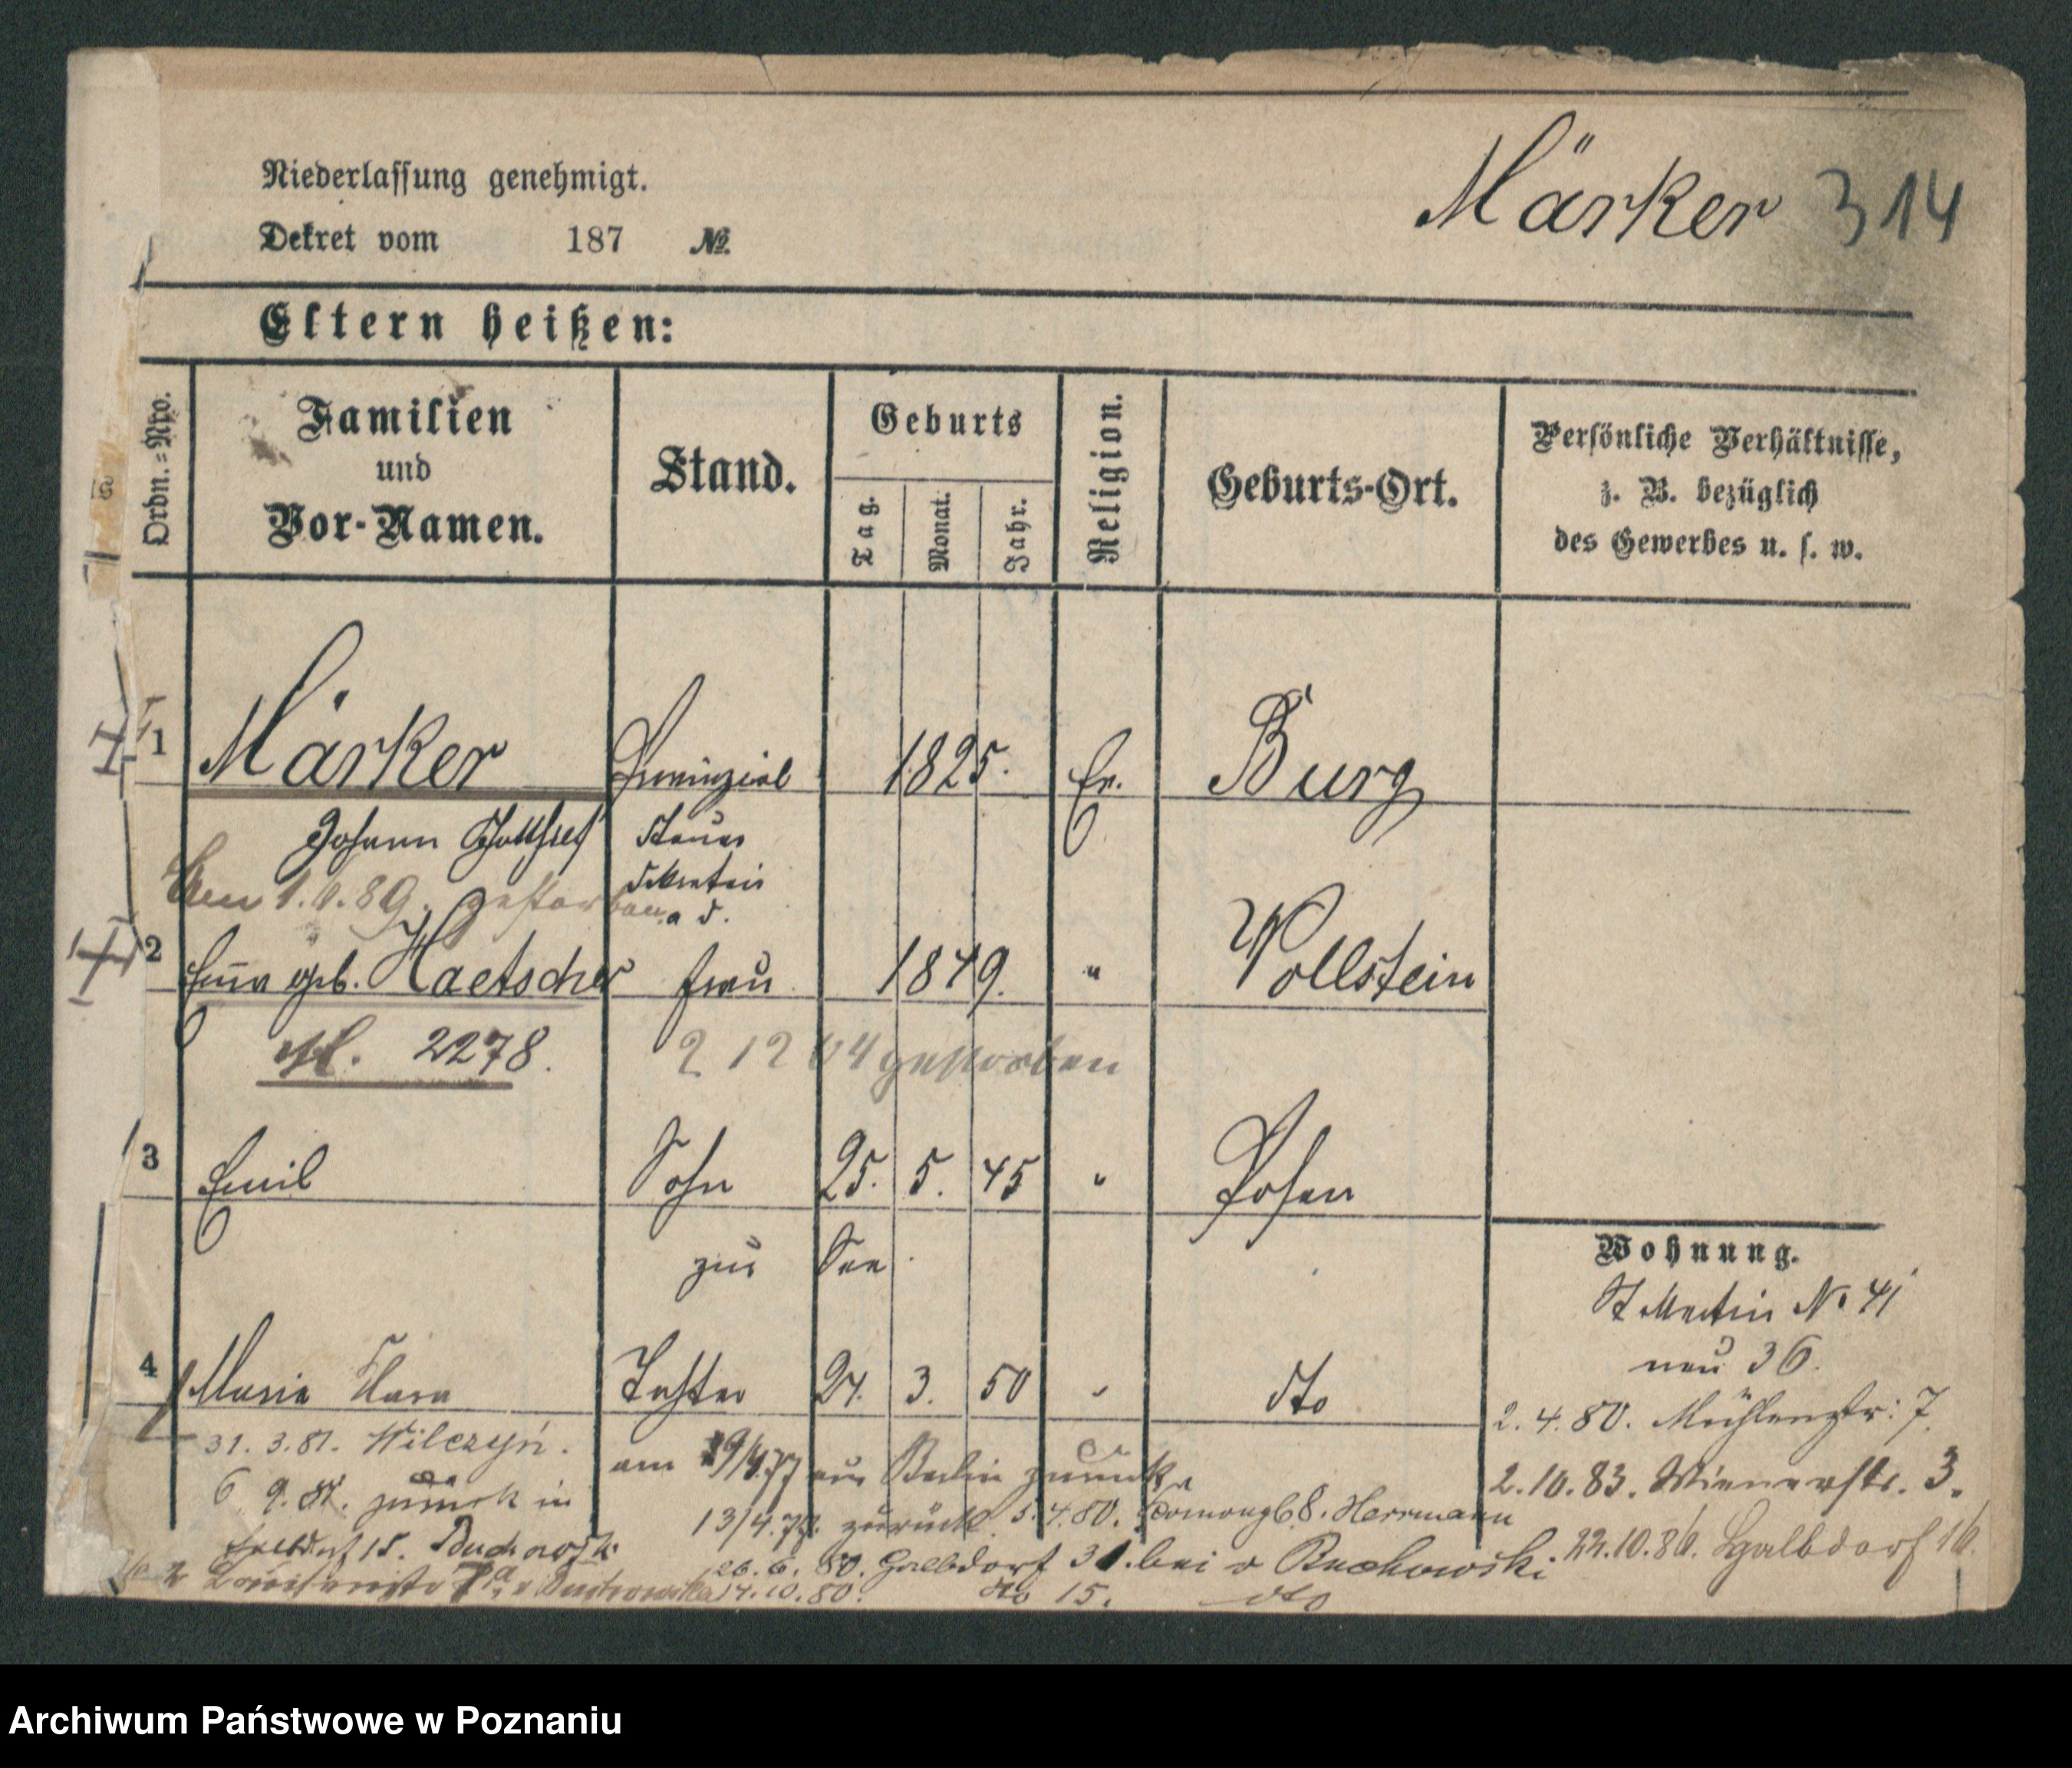 Märker 314
Niederlassung genehmigt.
Dekret vom 187 №
Eltern heißen:
Ordn.=Nro.
Familien
und
Vor-Namen.
Stand.
Geburts
Tag.
Monat.
Jahr.
Religion.
Geburts-Ort.
Persönliche Verhältnisse,
z. B. bezüglich
des Gewerbes u. s. w.
1 Märker Provinzial 1825. Ev. Burg
Johann Gottfried Steuer
Sekretair
a. d.
gestorben
2 geb. Haetscher Frau 1849. " Wollstein
2278. 2 12 04 gestorben
3 Emil Sohn 25. 5. 45 " Posen
zur See
Wohnung.
St Martin No 41
neu 36.
4 Maria Clara Tochter 24. 3. 50 " dto
2.4.80. Mühlenstr: 7.
31. 3. 81. Wilczyń.
am 19/4.77 aus Berlin zurück
2.10.83. Wienerstr. 3.
6 9. 81. zurück in
13/4.79. zurück. 5.4.80. 68. Herrmann
15. Buchowski
26. 6. 80. Halbdorf 31. bei v Buchowski.
22.10.86. Halbdorf 16.
14.10.80. dto 15. dto